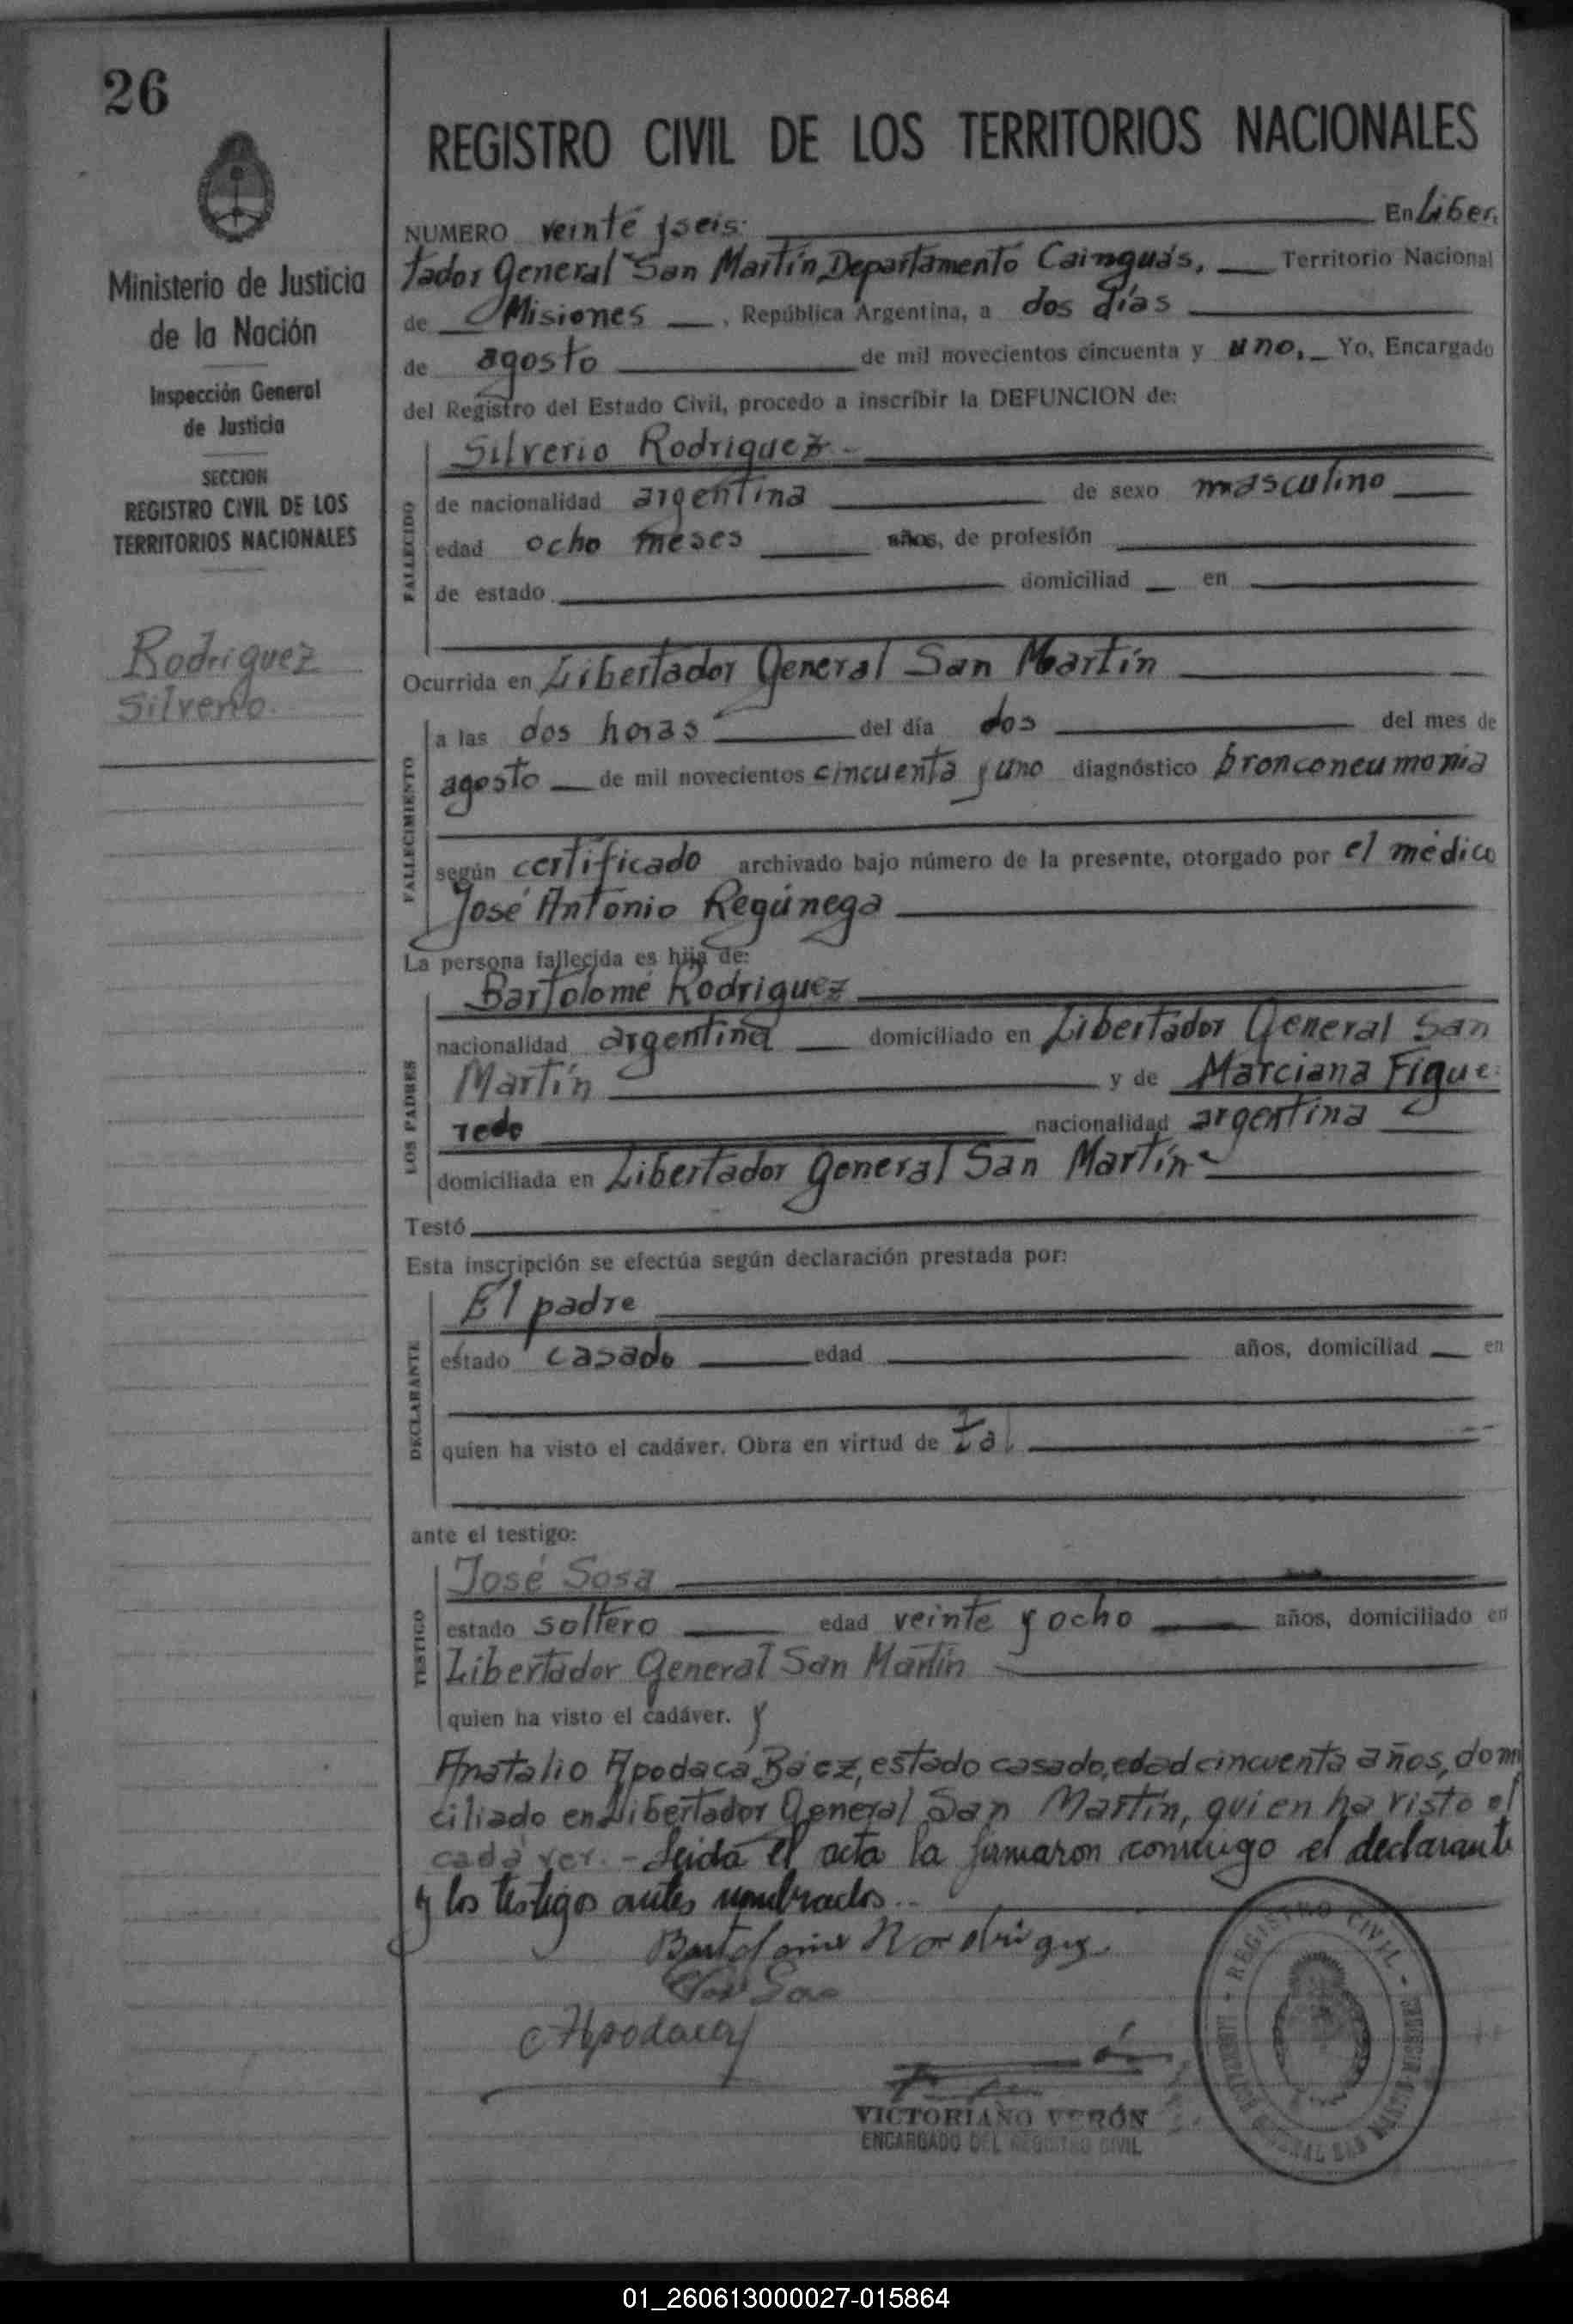 26
Ministerio de Justicia
de la Nación
Inspección General
de Justicia
SECCION
REGISTRO CIVIL DE LOS
TERRITORIOS NACIONALES
Rodriguez
Silverio.
REGISTRO CIVIL DE LOS TERRITORIOS NACIONALES
NUMERO veinte y seis. En Liber,
tador General San Martín Departamento Cainguás, Territorio Nacional
de Misiones, República Argentina, a dos días
de agosto de mil novecientos cincuenta y uno, Yo, Encargado
del Registro del Estado Civil, procedo a inscribir la DEFUNCION de:
FALLECIDO
Silverio Rodriguez
de nacionalidad argentina de sexo masculino
edad ocho meses años, de profesión
de estado domiciliad en
Ocurrida en Libertador General San Martín
FALLECIMIENTO
a las dos horas del día dos del mes de
agosto de mil novecientos cincuenta y uno diagnóstico bronconeumonia
según certificado archivado bajo número de la presente, otorgado por el médico
José Antonio Regúnega
La persona fallecida es hija de:
LOS PADRES
Bartolomé Rodriguez
nacionalidad argentina domiciliado en Libertador General San
Martín y de Marciana Figue
redo nacionalidad argentina
domiciliada en Libertador General San Martín
Testó
Esta inscripción se efectúa según declaración prestada por:
DECLARANTE
El padre
estado casado edad años, domiciliad en
quien ha visto el cadáver. Obra en virtud de tal
ante el testigo:
TESTIGO
José Sosa
estado soltero edad veinte y ocho años, domiciliado en
Libertador General San Martín
quien ha visto el cadáver. y
Anatalio Apodaca Báez, estado casado, edad cincuenta años, domi
ciliado en Libertador General San Martín, quien ha visto el
cadáver. - Leída el acta la firmaron conmigo el declarante
y los testigos antes nombrados..
Bartolome Rodriguez
José Sosa
Apodaca
VICTORIANO VERÓN
ENCARGADO DEL REGISTRO CIVIL
REGISTRO CIVIL
01_260613000027-015864